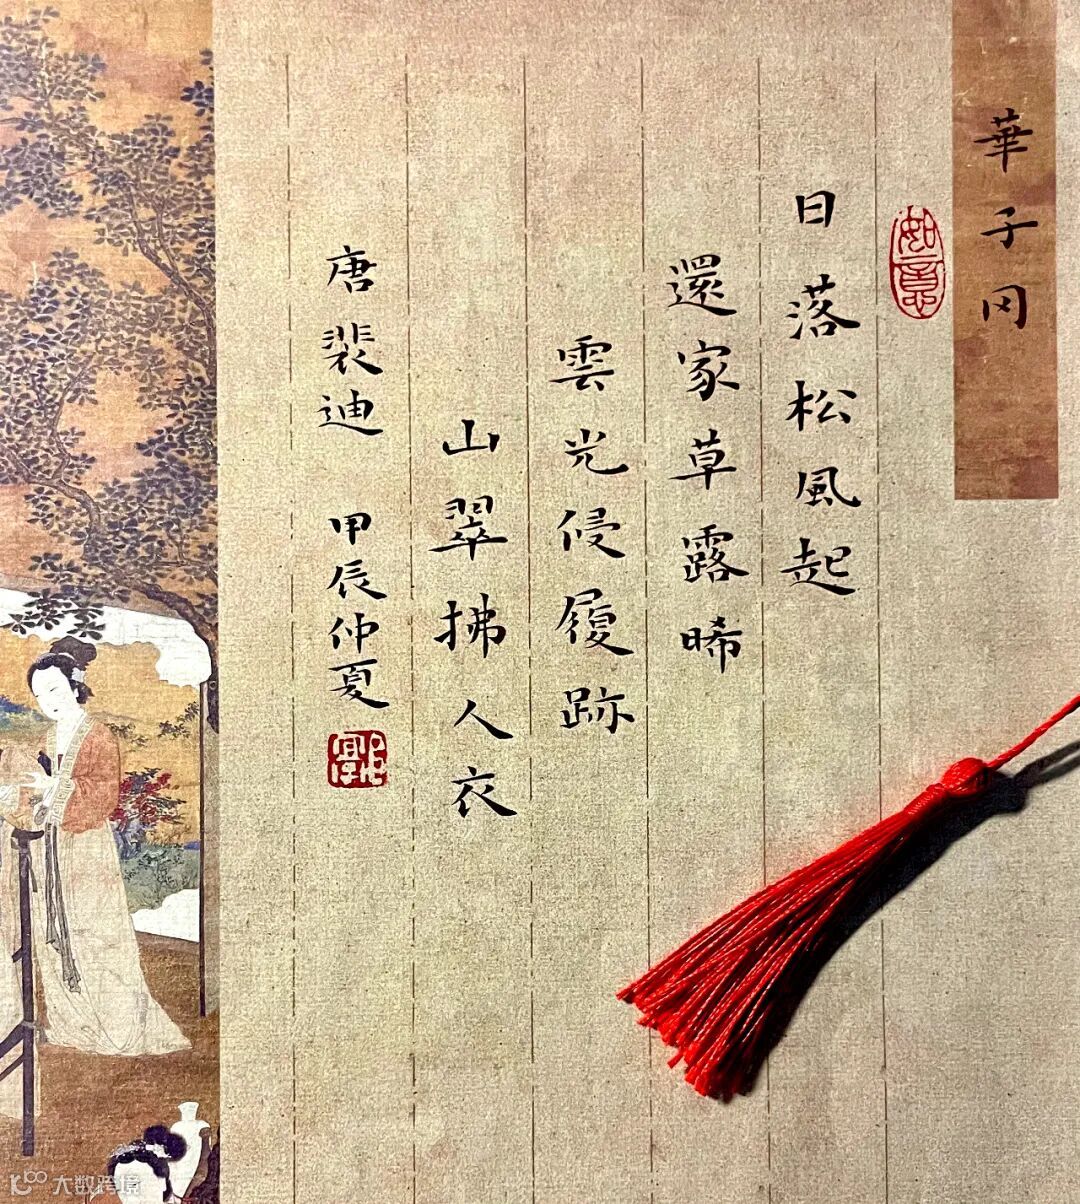 華子冈
如意
日落松風起
還家草露晞
雲光侵履跡
山翠拂人衣
唐裴迪 甲辰仲夏
大数跨境